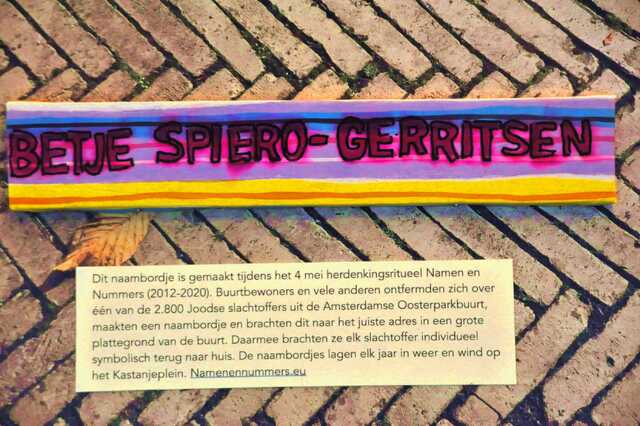 BETJE SPIERO-GERRITSEN
Dit naambordje is gemaakt tijdens het 4 mei herdenkingsritueel Namen en
Nummers (2012-2020). Buurtbewoners en vele anderen ontfermden zich over
één van de 2.800 Joodse slachtoffers uit de Amsterdamse Oosterparkbuurt,
maakten een naambordje en brachten dit naar het juiste adres in een grote
plattegrond van de buurt. Daarmee brachten ze elk slachtoffer individueel
symbolisch terug naar huis. De naambordjes lagen elk jaar in weer en wind op
het Kastanjeplein. Namenennummers.eu